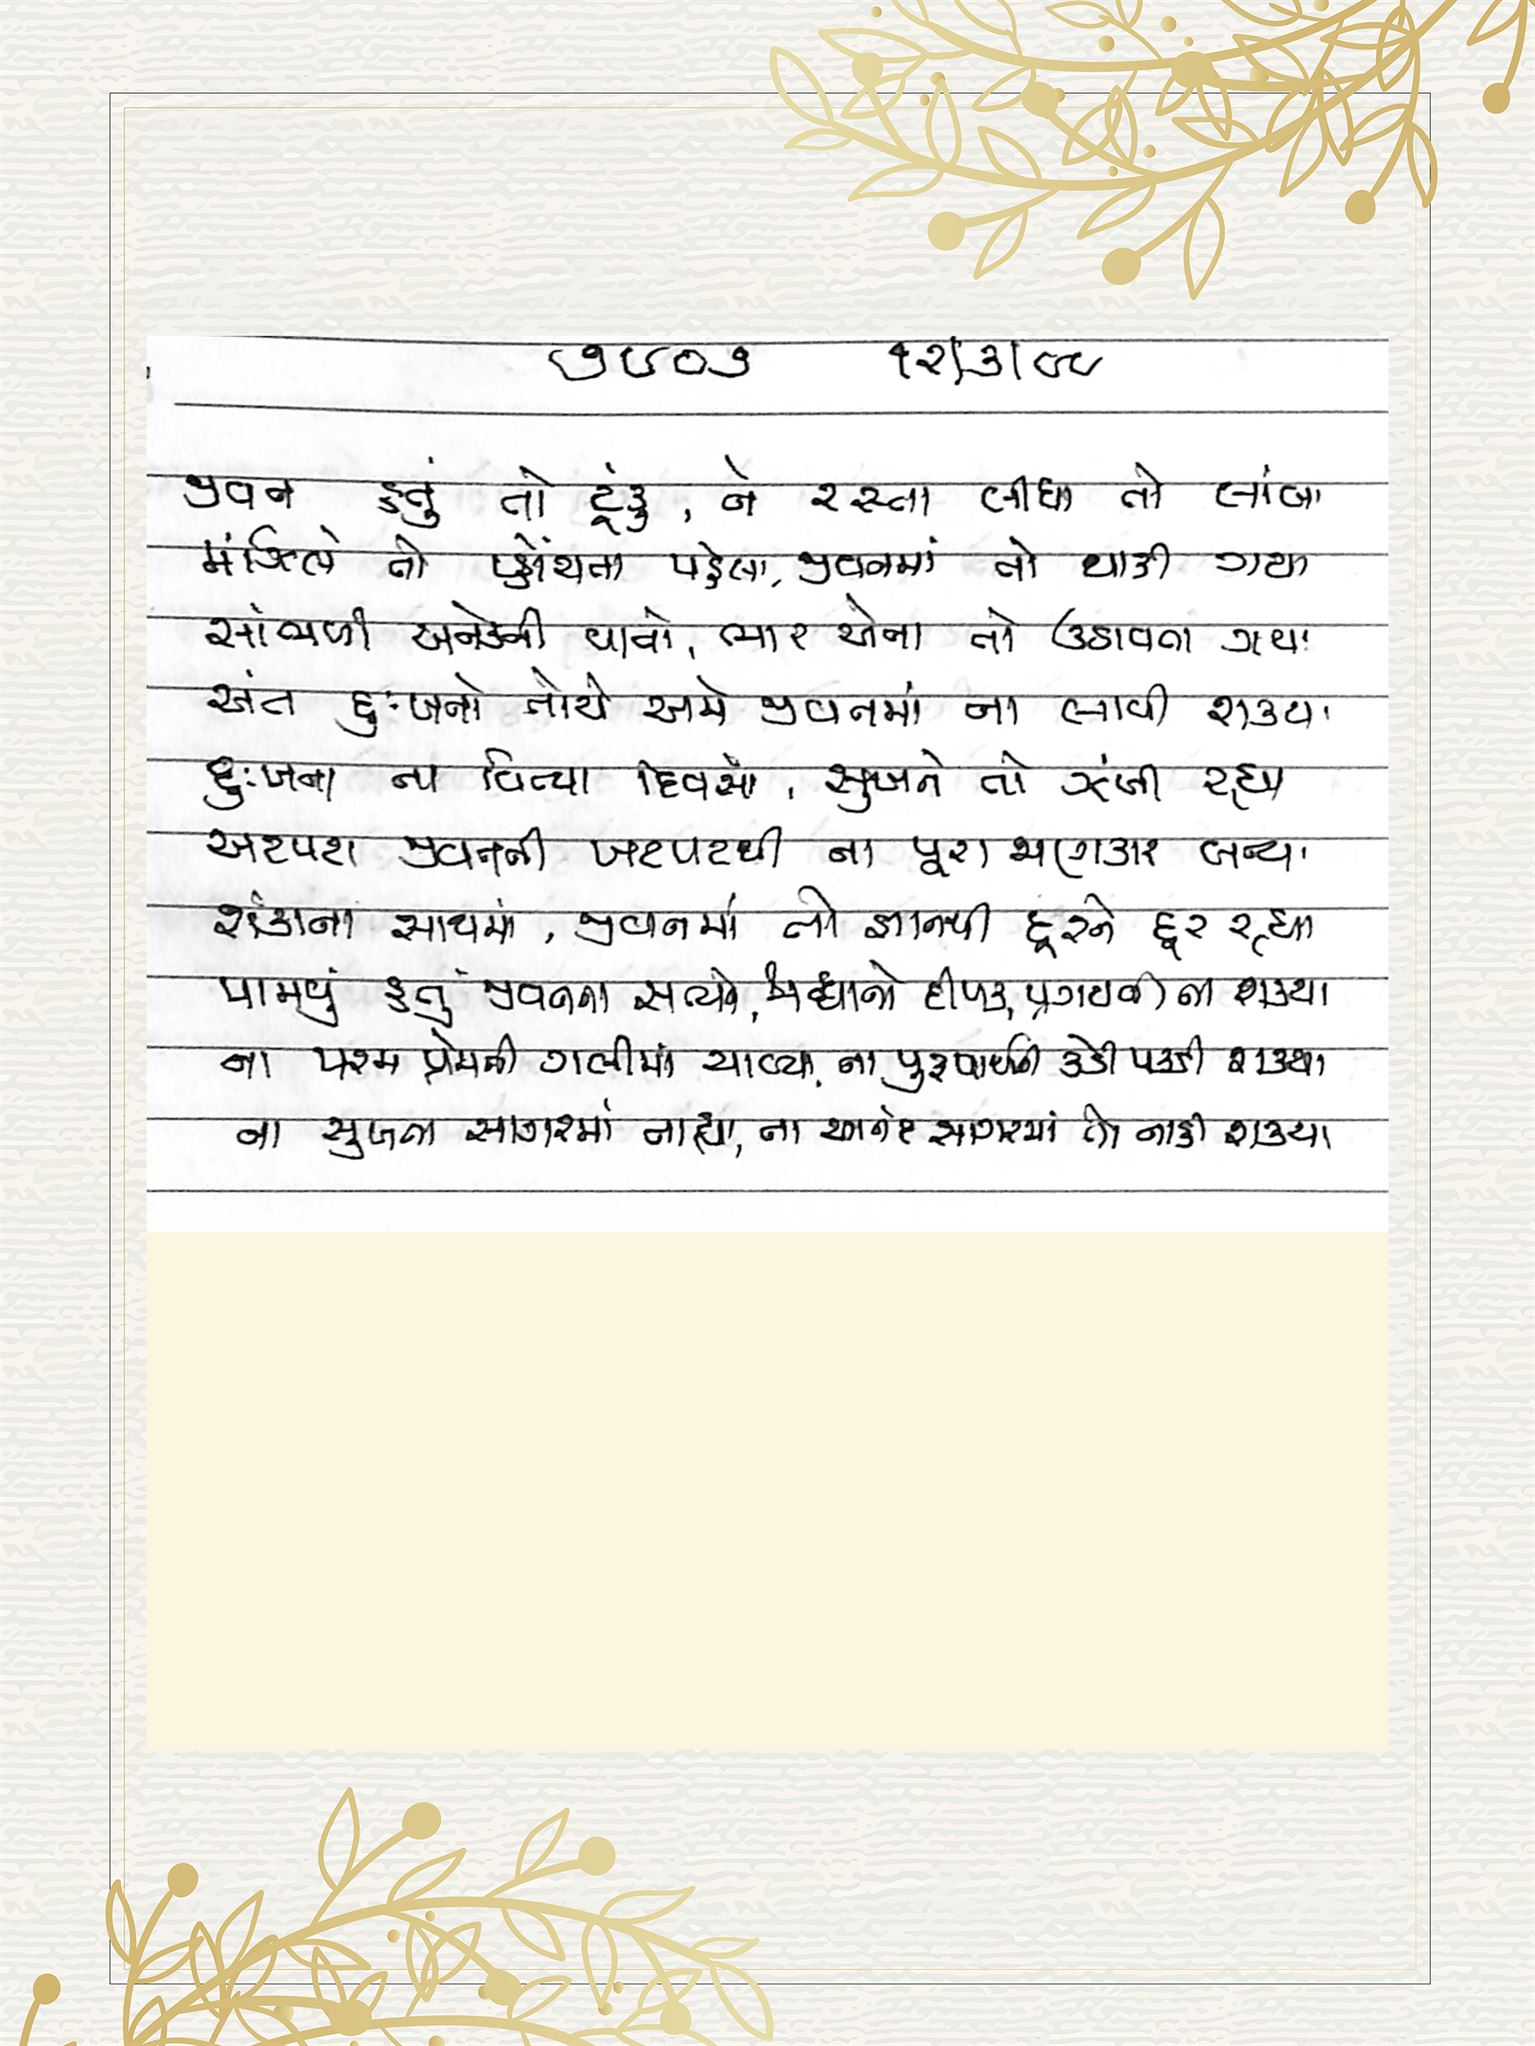 ૭૯૦૭ ૧૨/૩/૯૯
જીવન હતું તો ટૂંકું, ને રસ્તા લીધા તો લાંબા
મંઝિલે તો પહોંચતા પહેલા, જીવનમાં તો થાકી ગયા
સાંભળી અનેકની વાતો, ભાર એના તો ઉઠાવતા ગયા
અંત દુઃખનો તોયે અમે જીવનમાં ના લાવી શક્યા
દુઃખના ના વિત્યા દિવસો, સુખને તો ઝંખી રહ્યા
અટપટા જીવનની ખટપટથી ના પૂરા જાણકાર બન્યા
શંકાના સાથમાં, જીવનમાં તો જ્ઞાનથી દૂરને દૂર રહ્યા
પામવું હતું જીવનના સત્યને, શ્રદ્ધાનો દીપક પ્રગટાવી ના શક્યા
ના પરમ પ્રેમની ગલીમાં ચાલ્યા, ના પુરુષાર્થની કેડી પકડી શક્યા
ના સુખના સાગરમાં નાહ્યા, ના આનંદ સાગરમાં તો નાહી શક્યા